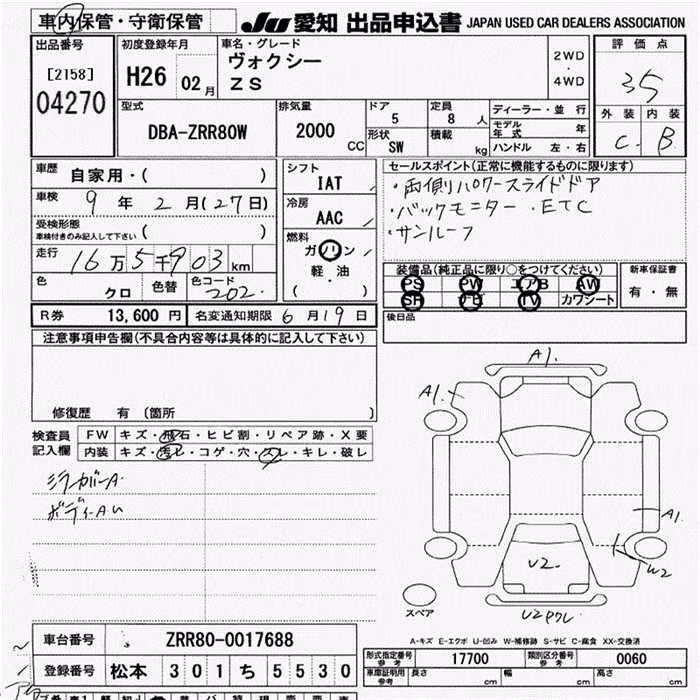 車内保管・守衛保管 JU 愛知 出品申込書 JAPAN USED CAR DEALERS ASSOCIATION
出品番号 [2158] 04270
初度登録年月 H26 02月
車名・グレード ヴォクシー ZS
2WD・4WD
評価点 35
外装 内装
C B
型式 DBA-ZRR80W
排気量 2000 CC
ドア 5
定員 8 人
形状 SW
積載 kg
ディーラー・並行
モデル年式 年
ハンドル 左・右
車歴 自家用・( )
車検 9年2月(27日)
受検形態 車検付きのみ記入して下さい ( )
走行 16万5千903km
色 クロ 色替 色コード 202
シフト IAT
冷房 AAC
燃料 ガソリン 軽・油 ( )
セールスポイント(正常に機能するものに限ります)
・両側パワースライドドア
・バックモニター・ETC
・サンルーフ
装備品(純正品に限り○をつけてください)
PS PW エアB AW
SR ナビ TV カワシート
新車保証書 有・無
後日品
R券 13,600円 名変通知期限 6月19日
注意事項申告欄(不具合内容等は具体的に記入して下さい)
修復歴 有 (箇所 )
検査員記入欄 FW キズ・飛石・ヒビ割・リペア跡・X要
内装 キズ・汚レ・コゲ・穴・スレ・キレ・破レ
ミラーカバーA
ボディーAU
A1.
A1.
A1
U2.
W2
スペア
U2ワレ
A-キズ E-エクボ U-凹み W-補修跡 S-サビ C-腐食 XX-交換済
車台番号 ZRR80-0017688
登録番号 松本 301 ち 5530
形式指定番号 参考 17700 類別区分番号 参考 0060
車庫証明用 参考 長さ cm 幅 cm 高さ cm